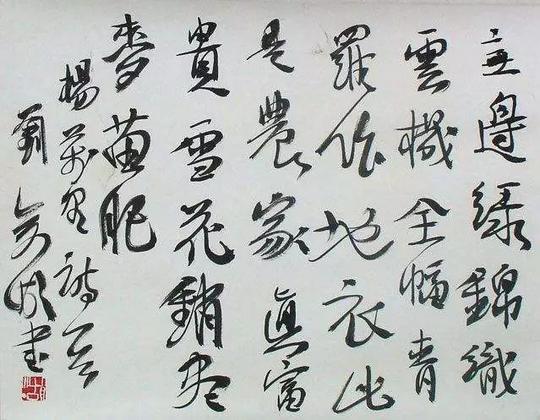 無邊綠錦織
雲機全幅青
羅作地衣此
是農家眞富
貴雪花銷盡
麥苗肥
楊萬里詩
書